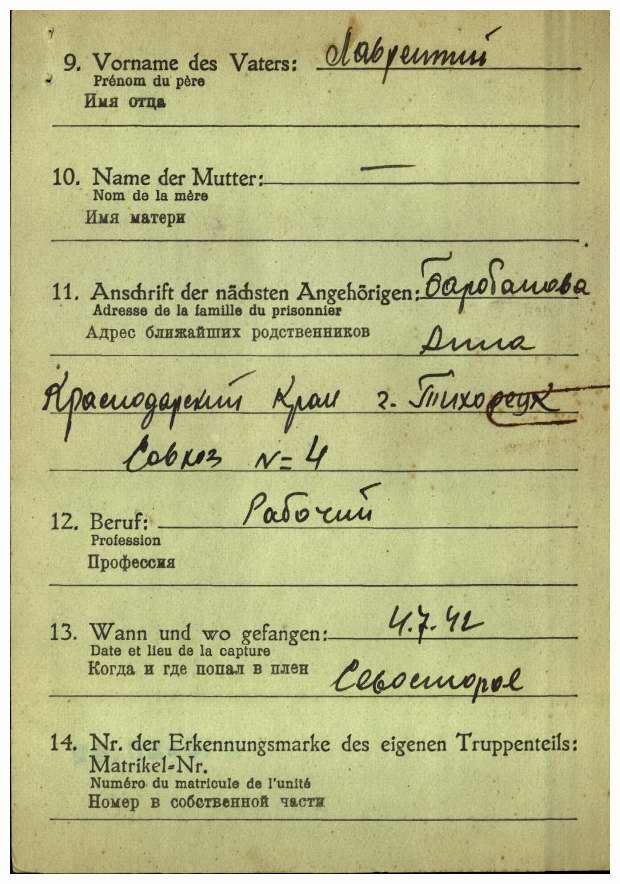 9. Vorname des Vaters: Лаврентий
Prénom du père
Имя отца
10. Name der Mutter: —
Nom de la mère
Имя матери
11. Anschrift der nächsten Angehörigen: Баробашова
Adresse de la famille du prisonnier
Адрес ближайших родственников
Анна
Краснодарский Край г. Тихорецк
Совхоз N= 4
12. Beruf: Рабочий
Profession
Профессия
13. Wann und wo gefangen: 4.7.42
Date et lieu de la capture
Когда и где попал в плен
Севостопол
14. Nr. der Erkennungsmarke des eigenen Truppenteils:
Matrikel-Nr.
Numéro du matricule de l'unité
Номер в собственной части